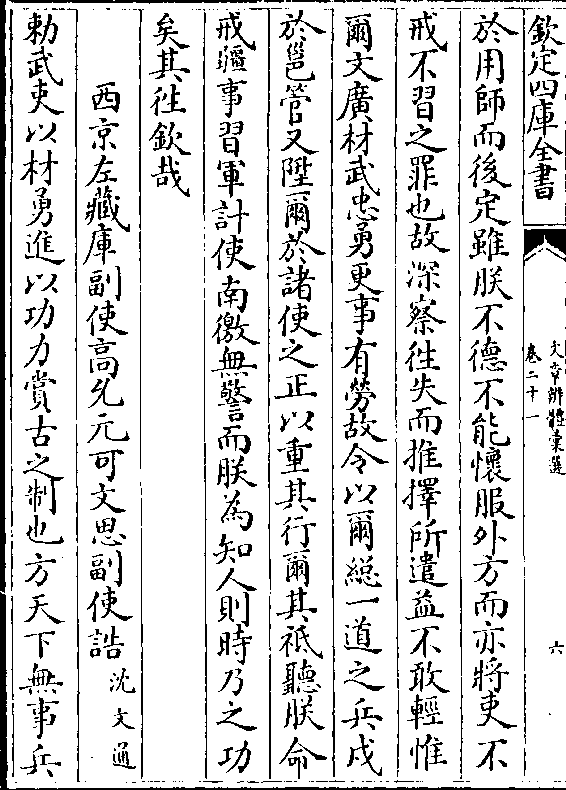 欽定四庫全書
文章辨體彙選
卷二十一
六
於用師而後定雖朕不德不能懷服外方而亦將吏不
戒不習之罪也故深察徃失而推擇所遣益不敢輕惟
爾文廣材武忠勇更事有勞故令以爾縂一道之兵戍
於邕管又陞爾於諸使之正以重其行爾其祗聽朕命
戒疆事習軍計使南徼無警而朕為知人則時乃之功
矣其徃欽哉
西京左藏庫副使高允元可文思副使誥 沈文通
勅武吏以材勇進以功力賞古之制也方天下無事兵